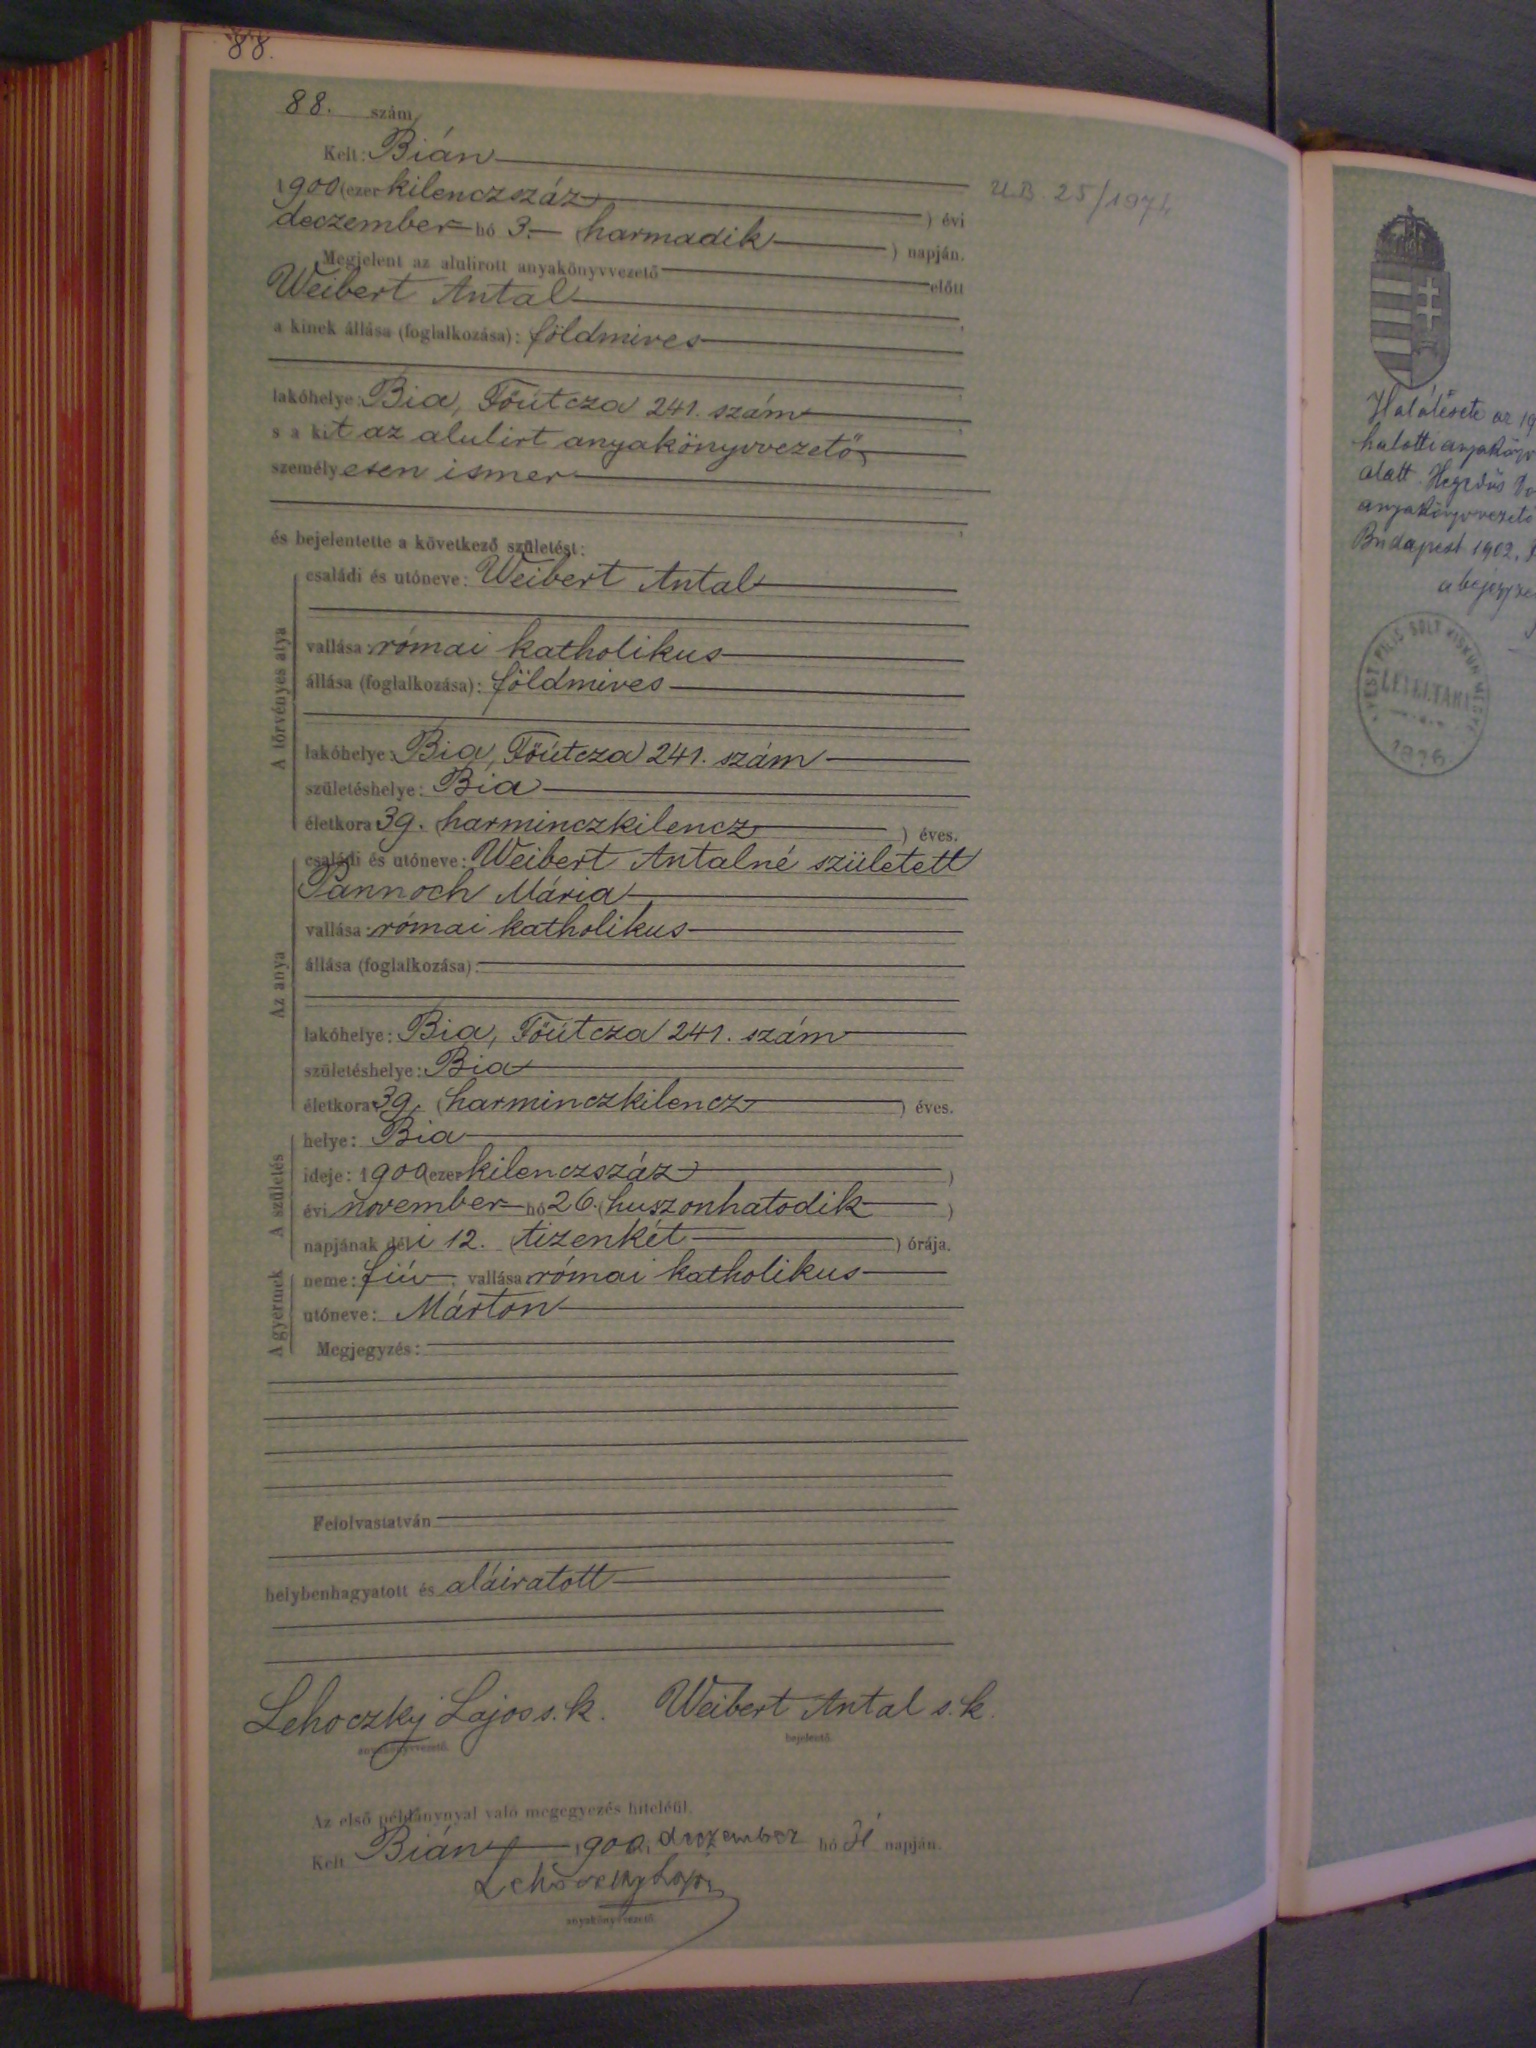 88.
88. szám
Kelt: Bián
1900 (ezer kilenczszáz ) évi
deczember hó 3. (harmadik ) napján.
Megjelent az alulirott anyakönyvvezető előtt
Weibert Antal
a kinek állása (foglalkozása): földmives
lakóhelye: Bia, Főútcza 241. szám
s a kit az alulirt anyakönyvvezető
személyesen ismer
és bejelentette a következő születést:
A törvényes atya
családi és utóneve: Weibert Antal
vallása: római katholikus
állása (foglalkozása): földmives
lakóhelye: Bia, Főútcza 241. szám
születéshelye: Bia
életkora 39. (harminczkilencz ) éves.
Az anya
családi és utóneve: Weibert Antalné született
Pannoch Mária
vallása: római katholikus
állása (foglalkozása):
lakóhelye: Bia, Főútcza 241. szám
születéshelye: Bia
életkora 39. (harminczkilencz ) éves.
A születés
helye: Bia
ideje: 1900 (ezer kilenczszáz )
évi november hó 26. (huszonhatodik )
napjának déli 12. (tizenkét ) órája.
A gyermek
neme: fiú, vallása: római katholikus
utóneve: Márton
Megjegyzés:
Felolvastatván
helybenhagyatott és aláiratott
Lehoczky Lajos s. k. Weibert Antal s. k.
anyakönyvvezető. bejelentő.
Az első példánynyal való megegyezés hiteléül.
Kelt Bián 1900. deczember hó 31 napján.
Lehoczky Lajos
anyakönyvvezető.
U.B. 25/1974
Halálesete az 19
halotti anyakönyv
alatt. Hegedűs
anyakönyvvezető
Budapest 1902.
PEST PILIS SOLT KISKUN
LEVÉLTÁRI
1876